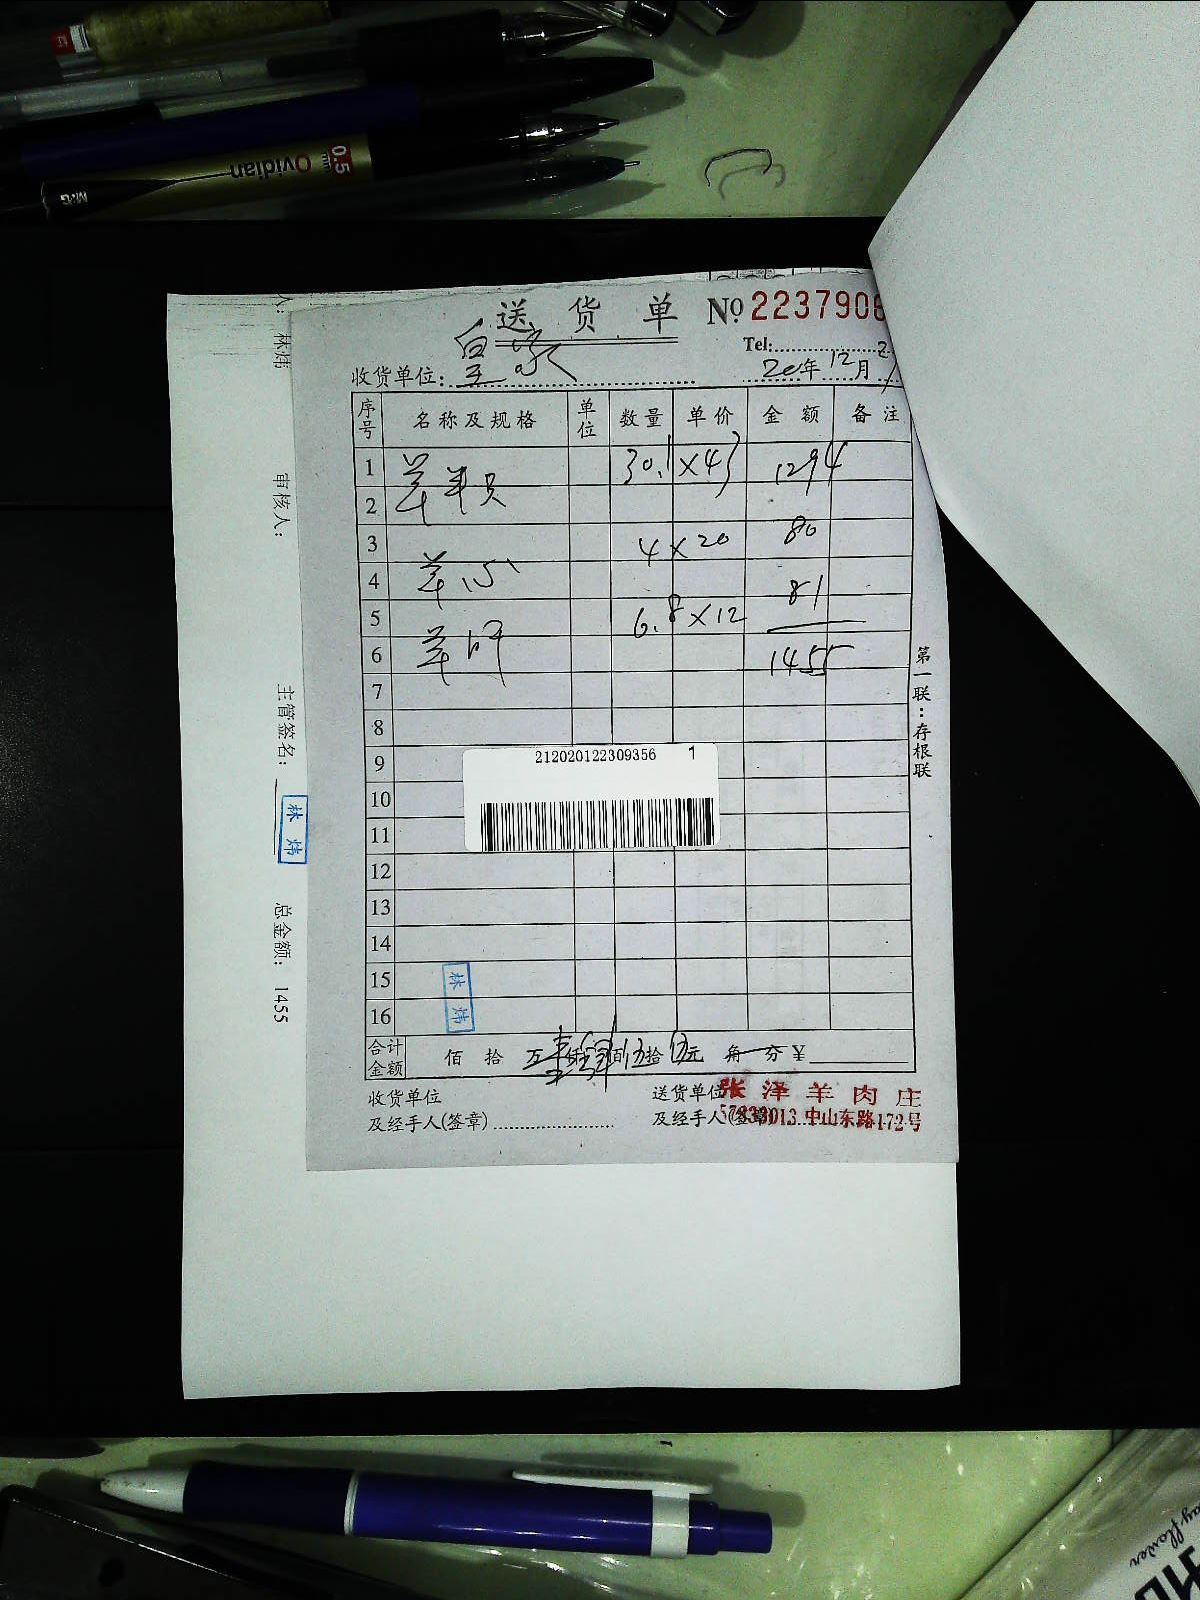 0.5
mm
Ovidian
M&G
送货单 № 2237908
Tel:
收货单位: 皇家 20年12月
序号 名称及规格 单位 数量 单价 金额 备注
1 30.1×43 1294
2
3 4×20 80
4 羊心
5 6.8×12 81
6 羊肝 1455
7
8
9
10
11
12
13
14
15
16
212020122309356 1
林炜
合计金额 佰 拾 万 壹仟肆佰伍拾伍元 角 分 ¥
收货单位 送货单位 张泽羊肉庄
及经手人(签章) 及经手人(签章) 57833013 中山东路172号
第一联:存根联
人: 林炜
审核人:
主管签名: 林炜
总金额: 1455